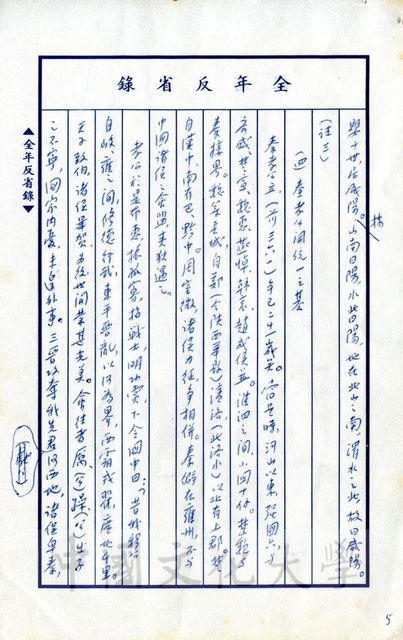 全年反省錄
與十世居咸陽。山南曰陽,水北曰陽,地在北山之南,渭水之北,故曰咸陽。
(註三)
(四)秦孝公開統一之基
秦孝公立(前三六一)年已二十一歲矣。當是時,河山以東強國六,與
齊威、楚宣、魏惠、燕悼、韓哀、趙成侯並。淮泗之間小國十餘。楚魏與
秦接界。魏築長城,自鄭(今陝西華縣)濱洛(北洛水)以北有上郡。楚
自漢中,南有巴、黔中。周室微,諸侯力征,爭相併。秦僻在雍州,不與
中國諸侯之會盟,夷狄遇之。
孝公於是布惠,振孤寡,招戰士,明功賞,下令國中曰:「昔我穆公
自岐雍之間,修德行武,東平晉亂,以河為界,西霸戎翟,廣地千里。
天子致伯,諸侯畢賀,為後世開業甚光美。會往者厲(公)、躁(公)、出子
之不寧,國家內憂,未遑外事。三晉攻奪我先君河西地,諸侯卑秦,
▲全年反省錄▼
中國文化大學
5